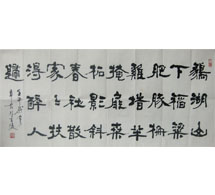 鵝湖山
下稻粱
肥豚柵
雞棲半
掩扉桑
柘影斜
春社散
家家扶
得醉人
歸